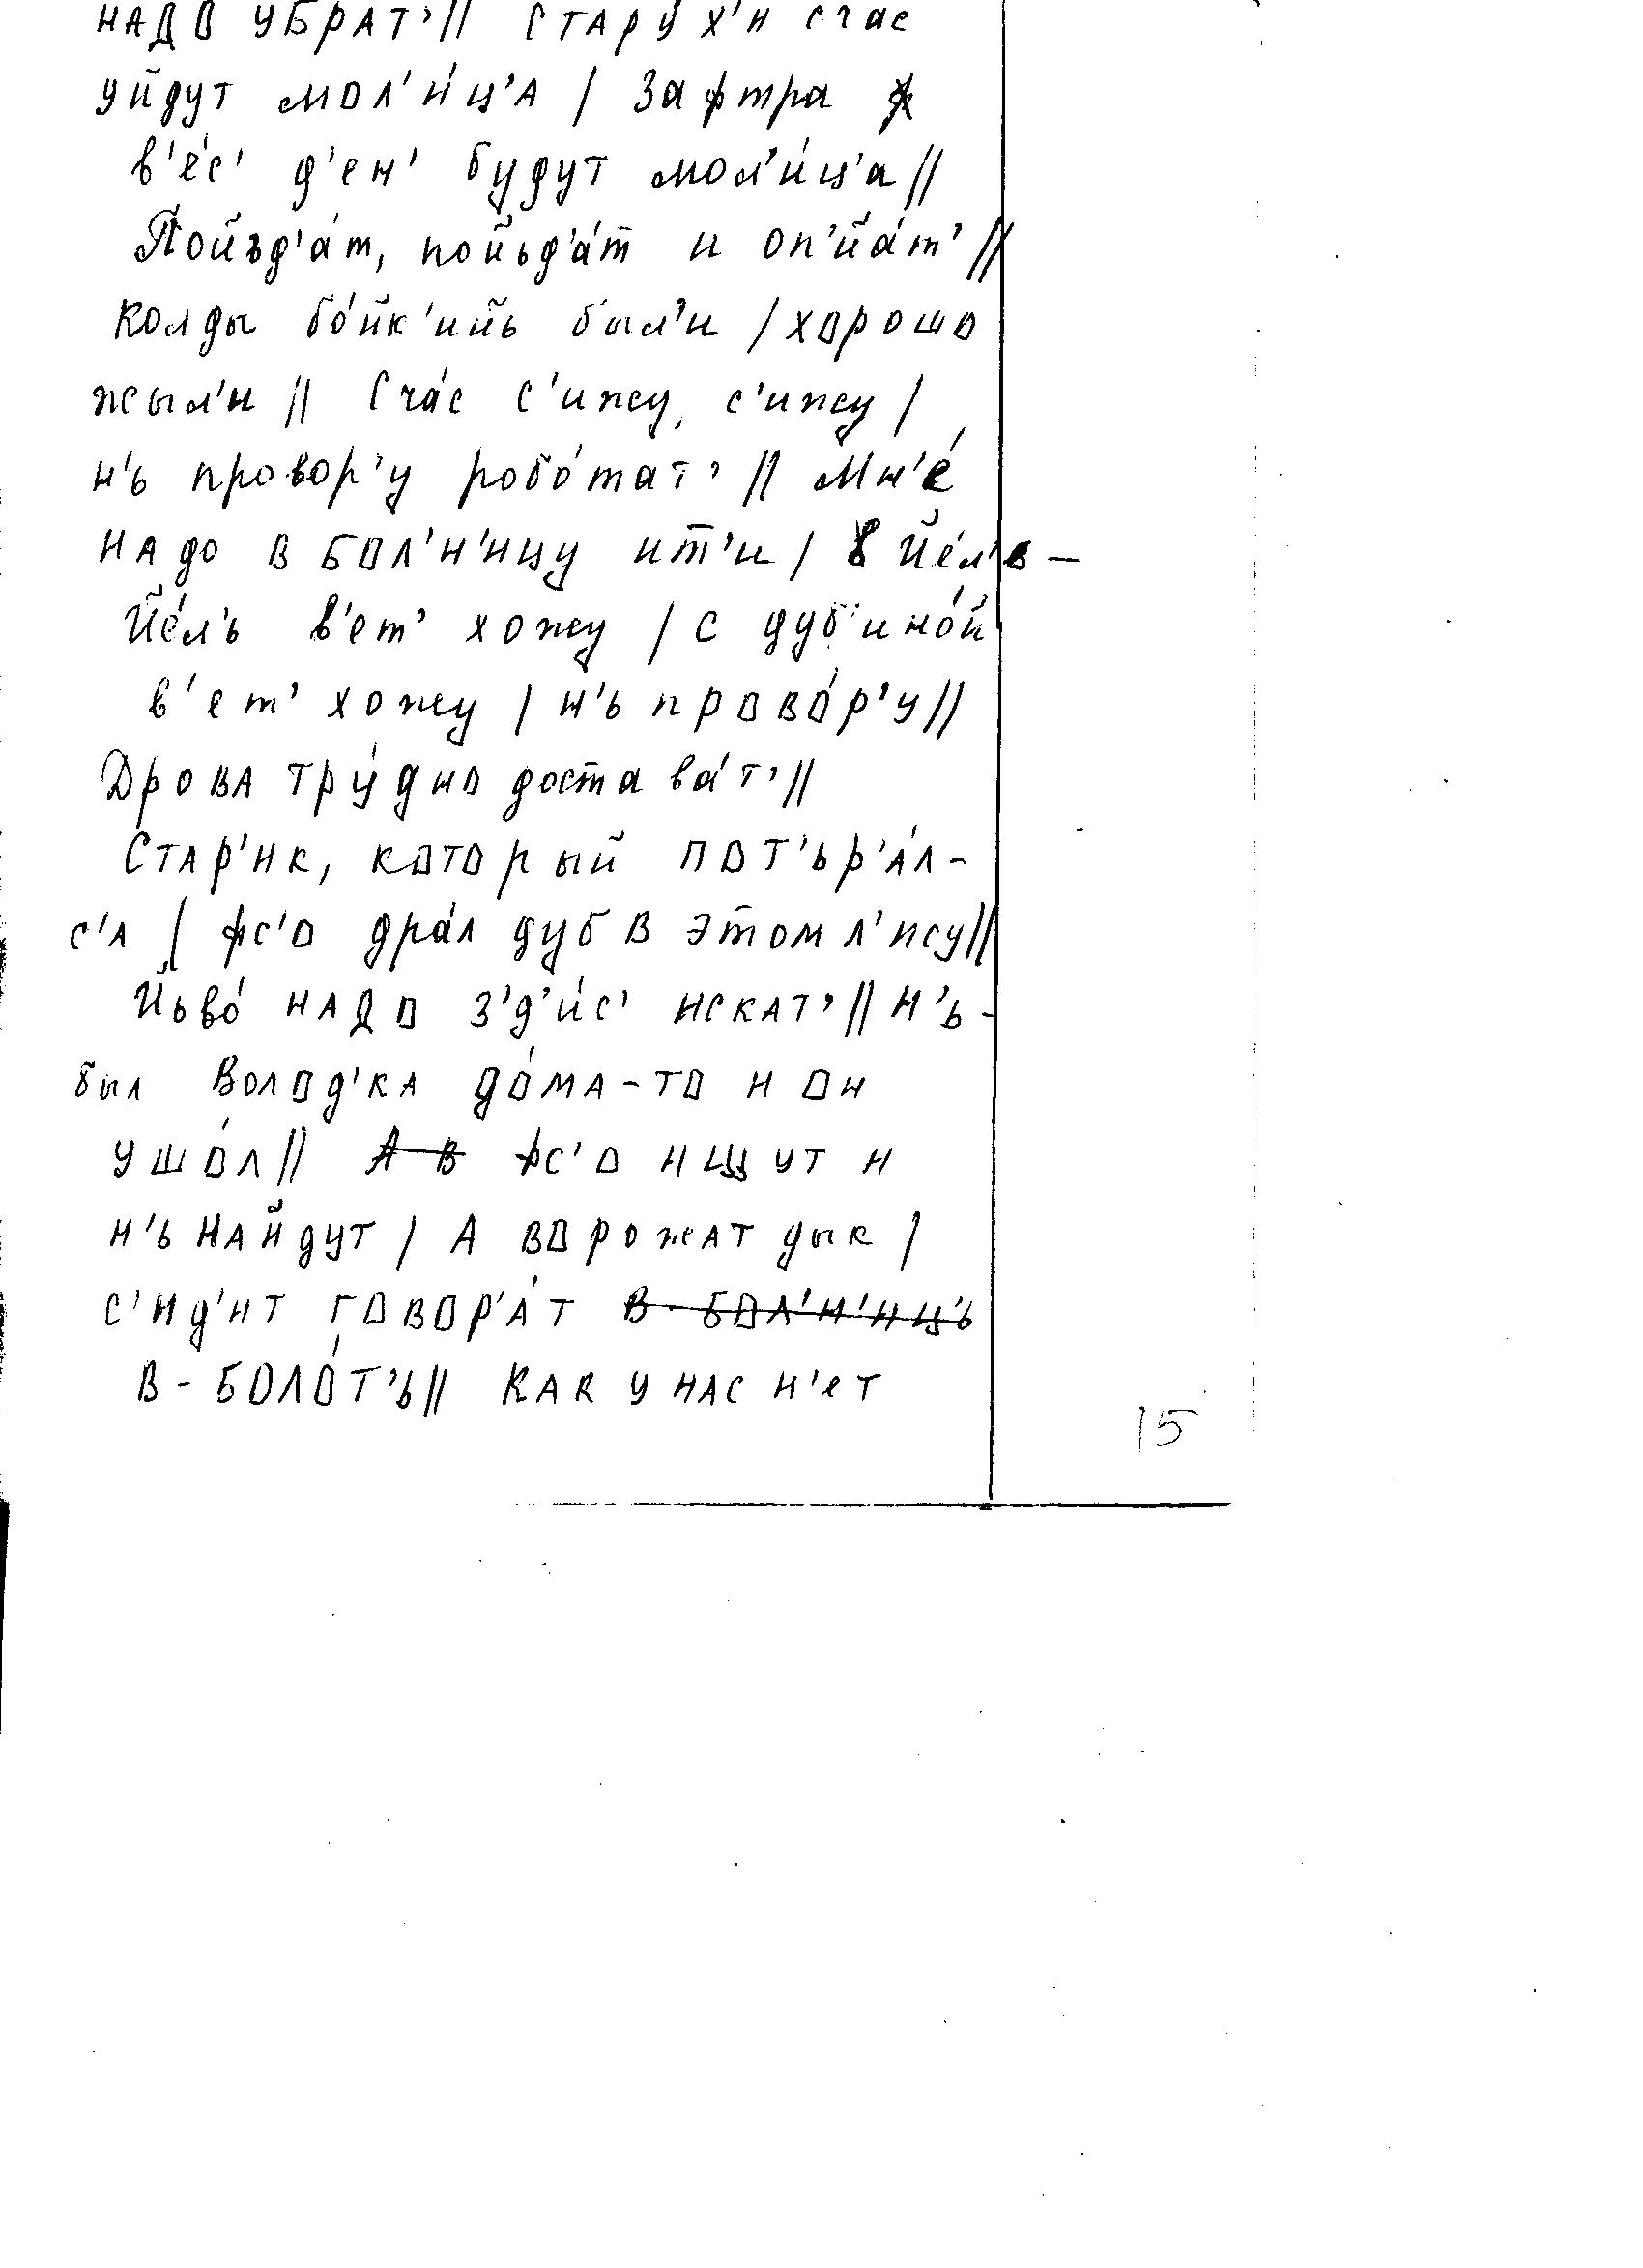 надо убрат'// Стару́х'и счас
уйдут мол'и́ц'а / Зафтра
в'е́с' д'ен' будут мол'и́ц'а//
Пойьд'а́т, пойьд'а́т и оп'йа́т'//
Колды бо́йк'ийь был'и / хорошо
жыл'и // Сча́с с'ижу, с'ижу /
н'ь провор'у робо́тат' // Мн'е́
надо в бол'н'ицу ит'и / Йе́л'ь-
йе́л'ь в'ет' хожу / с дуб'ино́й
в'ет' хожу / н'ь прово́р'у//
Дрова тру́дно достава́т'//
Стар'ик, который пот'ьр'а́л-
с'а / фс'о дра́л дуб в этом л'ису//
Йьво́ надо з'д'и́с' искат'// Н'ь-
был Волод'ка до́ма-то и он
ушо́л// А в фс'о ищут и
н'ь найдут / А ворожат дык /
с'ид'ит говор'а́т в-бол'н'иц'ь
в-боло́т'ь// Как у нас н'ет
15